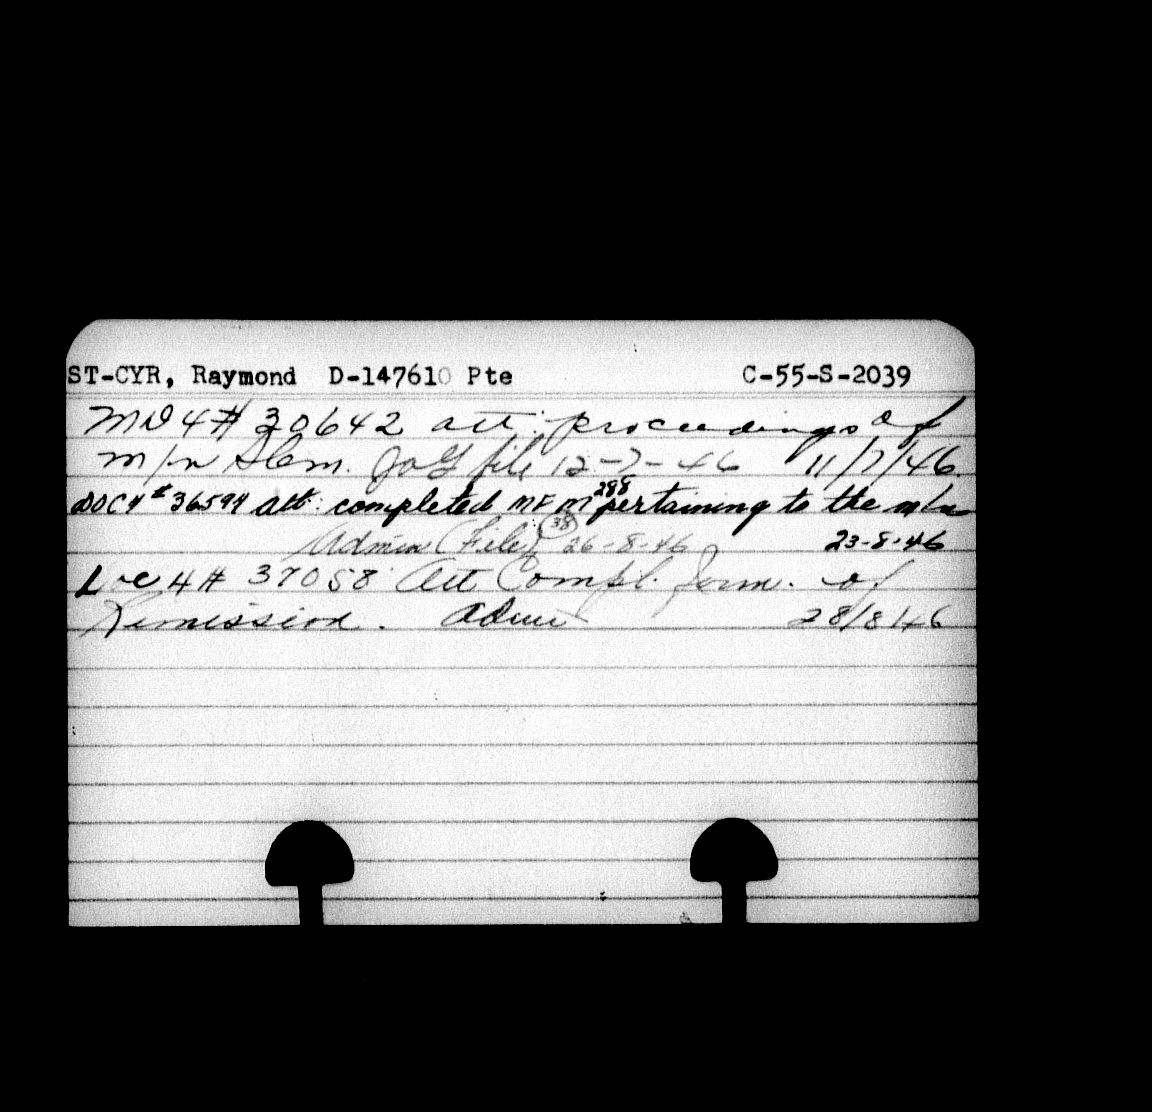 ST-CYR, Raymond D-147610 Pte C-55-S-2039
MD4# 30642 att: proceedings of
m/n Slam. JAG file 12-7-46 11/7/46
DOC4# 36594 att: completed MFM 288 pertaining to the m/n
Admin (File) 38 26-8-46 23-8-46
Loc 4# 37058 Att Compl. form. of
Remission. Admin 28/8/46